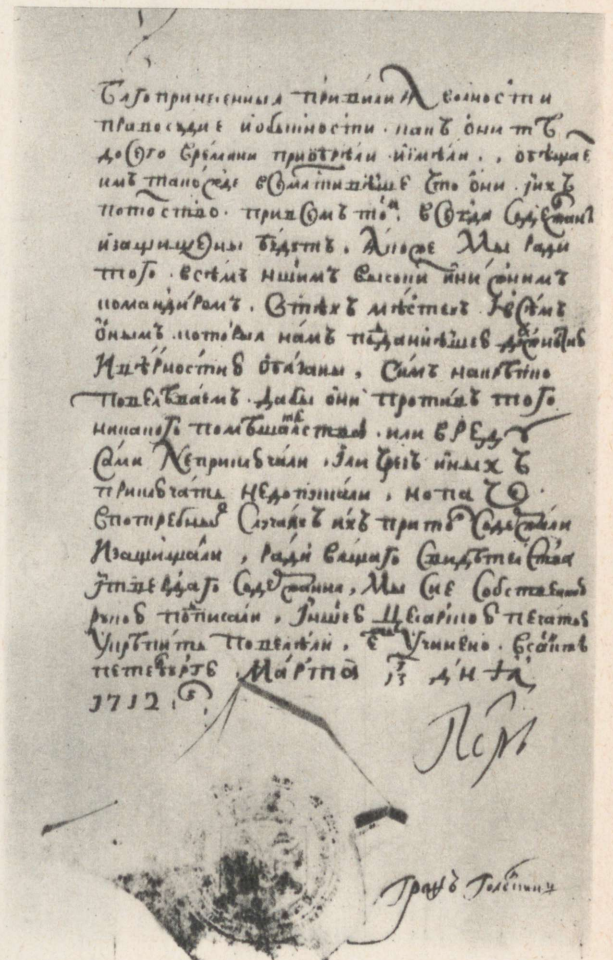 привилия вольности
правосудие и обычности. какъ они тѣ
до сего времени приобрѣли и имѣли., обѣщае
имъ такожде что они. и ихъ
потомство. при всемъ томъ. всегда содержанъ
и защищены будутъ. А похже Мы ради
того. всѣмъ ншимъ вышнимъ и нижнимъ
командиромъ. въ тѣхъ мѣстехъ. и всѣмъ
онымъ. которыя намъ
И вѣрностию обязаны, Симъ накрѣпко
повелѣваемъ. дабы они противъ того
никакого помѣшателства. или вреду
Сами Неприключали. Или чрезъ иныхъ
приключать недопущали, но паче
въ потребныхъ Случаяхъ ихъ при томъ Содержали
И защищали, ради вящшаго Свидѣтелства
и твердаго Содержания, Мы Сие Собственною
рукою подписали, Ишею Цесарскою печатью
укрѣпить повелѣли, Учинено. Всанктъ
петербургѣ. Марта 13 дня,
1712. г.
Петръ
Графъ Головкинъ